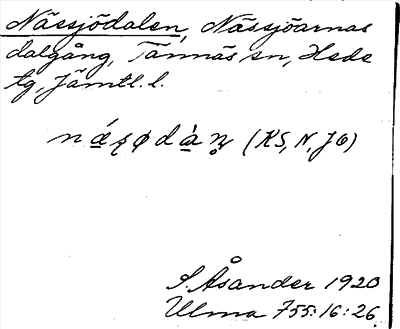 Nässjödalen, Nässjöarnas
dalgång, Tännäs sn, Hede
tg, Jämtl. l.
(KS, N, JO)
S. Åsander 1920
Ulma 755:16:26